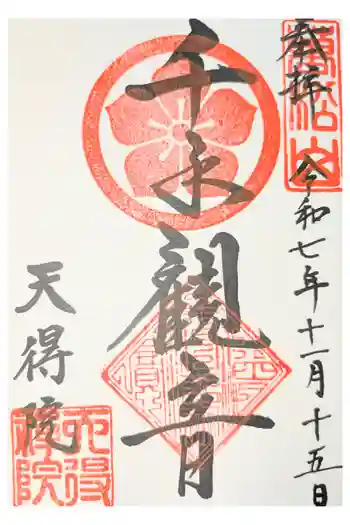 奉拝
令和七年十一月十五日
千手観音
天得院
萬松山
天得禅院